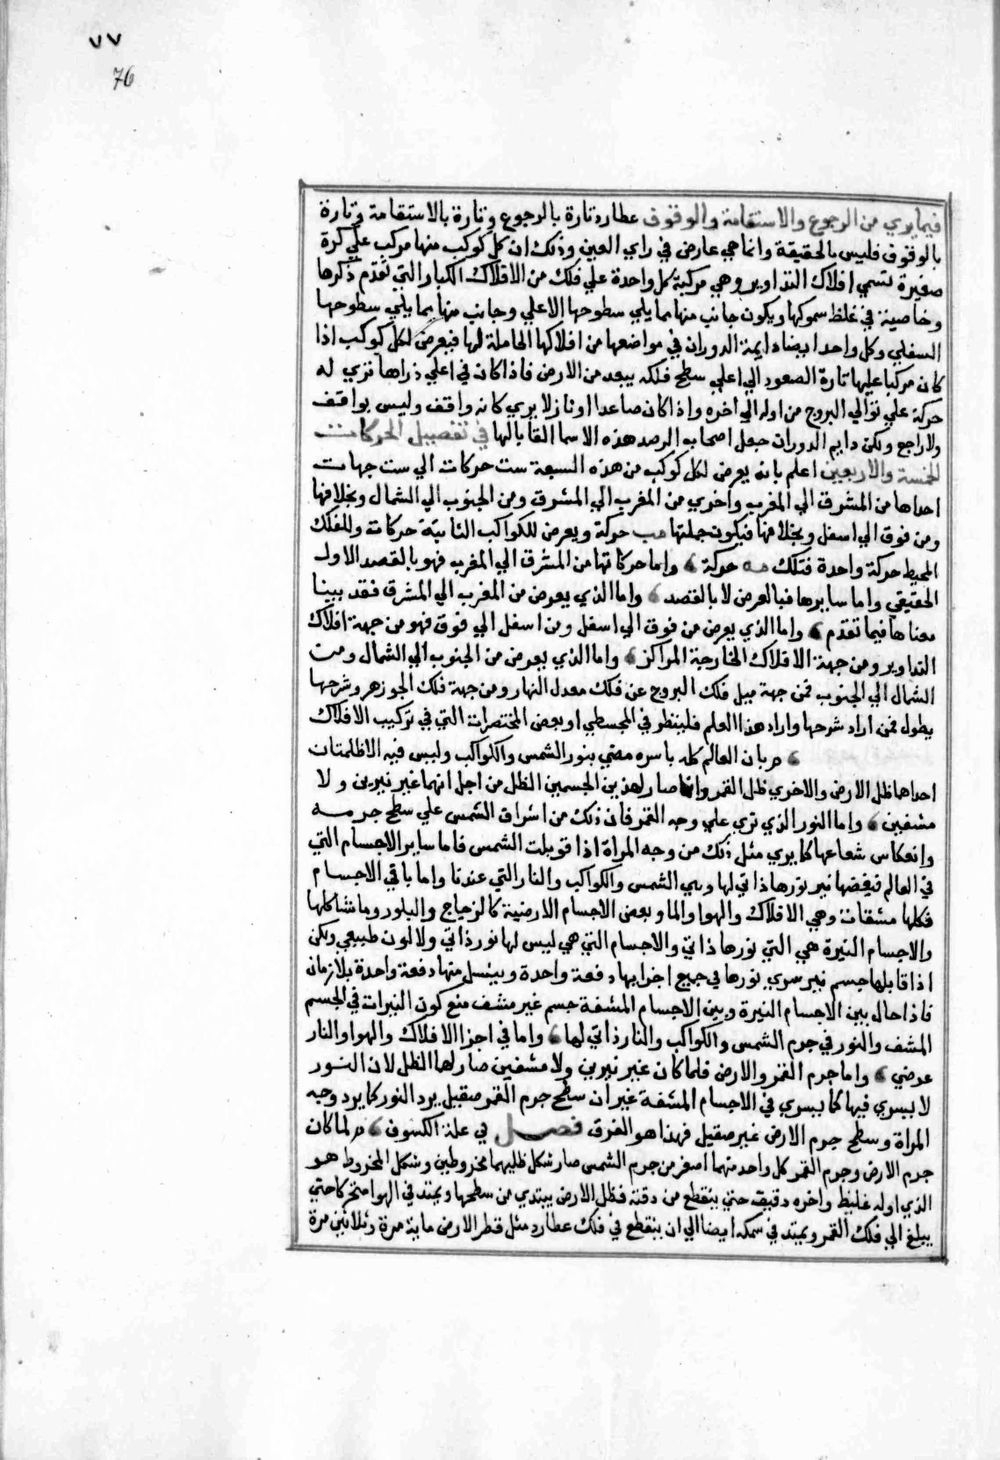 ٧٧
76
فيما يري من الرجوع والاستقامة والوقوف عطارد تارة بالرجوع وتارة بالاستقامة وتارة
بالوقوف فليس بالحقيقة وانما هي عارض في راي العين وذلك ان كل كوكب منها مركب علي كرة
صغيرة تسمي افلاك التداوير وهي مركبة كل واحدة علي فلك من الافلاك الكبار التي تقدم ذكرها
وخاصية في غلظ سموكها ويكون جانب منها مما يلي سطوحها الاعلي وجانب منها مما يلي سطوحها
السفلي وكل واحد ايضا دايمة الدوران في مواضعها من افلاكها الحاملة لها فيعرض لكل كوكب اذا
كان مركبا عليها تارة الصعود الي اعلي سطح فلكه يبعد من الارض فاذا كان في اعلي ذراها تري له
حركة علي توالي البروج من اوله الي اخره واذا كان صاعدا او نازلا يري كانه واقف وليس بواقف
ولا راجع ولكن دايم الدوران جعل اصحاب الرصد هذه الاسما القابا لها في تفصيل الحركات
الخمسة والاربعين اعلم بانه يعرض لكل كوكب من هذه السبعة ست حركات الي ست جهات
احداها من المشرق الي المغرب واخري من المغرب الي المشرق ومن الجنوب الي الشمال وبخلافها
ومن فوق الي اسفل وبخلافها فيكون جملتها مب حركة ويعرض للكواكب الثابتة حركات وللفلك
المحيط حركة واحدة فتلك مه حركة واما حركاتها من المشرق الي المغرب فهو بالقصد الاول
الحقيقي واما سايرها فبالعرض لا بالقصد واما الذي يعرض من المغرب الي المشرق فقد بينا
معناها فيما تقدم واما الذي يعرض من فوق الي اسفل ومن اسفل الي فوق فهو من جهة افلاك
التداوير ومن جهة الافلاك الخارجة المراكز واما الذي يعرض من الجنوب الي الشمال ومن
الشمال الي الجنوب فمن جهة ميل فلك البروج عن فلك معدل النهار ومن جهة فلك الجوزهر وشرحها
يطول فمن اراد شرحها واراد هذا العلم فلينظر في المجسطي او بعض المختصرات التي في تركيب الافلاك
بان العالم كله باسره مضي بنور الشمس والكواكب وليس فيه الا ظلمتان
احداهما ظل الارض والاخري ظل القمر وانما صار لهذين الجسمين الظل من اجل انهما غير نيرين ولا
مشفين واما النور الذي تري علي وجه القمر فان ذلك من اشراق الشمس علي سطح جرمه
وانعكاس شعاعها كما يري مثل ذلك من وجه المراة اذا قوبلت الشمس فاما ساير الاجسام التي
في العالم فبعضها نير نورها ذاتي لها وهي الشمس والكواكب والنار التي عندنا واما باقي الاجسام
فكلها مشفات وهي الافلاك والهوا والما وبعض الاجسام الارضية كالزجاج والبلور وما شاكلها
والاجسام النيرة هي التي نورها ذاتي والاجسام التي هي ليس لها نور ذاتي ولا لون طبيعي ولكن
اذا قابلها جسم نير سري نورها في جميع اجزايها دفعة واحدة وينسل منها دفعة واحدة بلا زمان
فاذا حال بين الاجسام النيرة وبين الاجسام المشفة جسم غير مشف منع كون النيرات في الجسم
المشف والنور في جرم الشمس والكواكب والنار ذاتي لها واما في اجزا الافلاك والهوا والنار
عرضي واما جرم القمر والارض فلما كان غير نيرين ولا مشفين صار لها الظل لان النور
لا يسري فيها كما يسري في الاجسام المشفة غير ان سطح جرم القمر صقيل يرد النور كما يرد وجه
المراة وسطح جرم الارض غير صقيل فهذا هو الفرق فصل في علة الكسوف لما كان
جرم الارض وجرم القمر كل واحد منهما اصغر من جرم الشمس صار شكل ظليهما مخروطين وشكل المخروط هو
الذي اوله غليظ واخره دقيق حتي ينقطع من دقته فظل الارض يبتدي من سطحها ويمتد في الهوا منخرطا حتي
يبلغ الي فلك القمر ويمتد في سمكه ايضا الي ان ينقطع في فلك عطارد مثل قطر الارض ماية مرة وثلاثين مرة